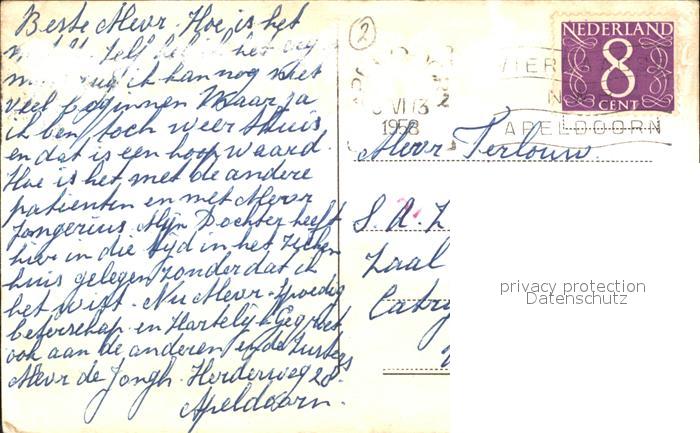 Beste Mevr. Hoe is het
Zelf heb ik het erg
ik kan nog niet
veel beginnen Maar ja
ik ben toch weer thuis
en dat is een hoop waard.
Hoe is het met de andere
patienten en met Mevr
Jongerius. Mijn Dochter heeft
hier in die tijd in het Zieken
huis gelegen zonder dat ik
het wist. Nu Mevr. Spoedig
beterschap en Hartelijk Gegroet
ook aan de anderen en de Zusters
Mevr de Jongh. Herderweg 28.
Apeldoorn.
2
NEDERLAND
8
CENT
VIER
1958
APELDOORN
Mevr Terlouw.
S. A. Z
Zaal
privacy protection
Datenschutz